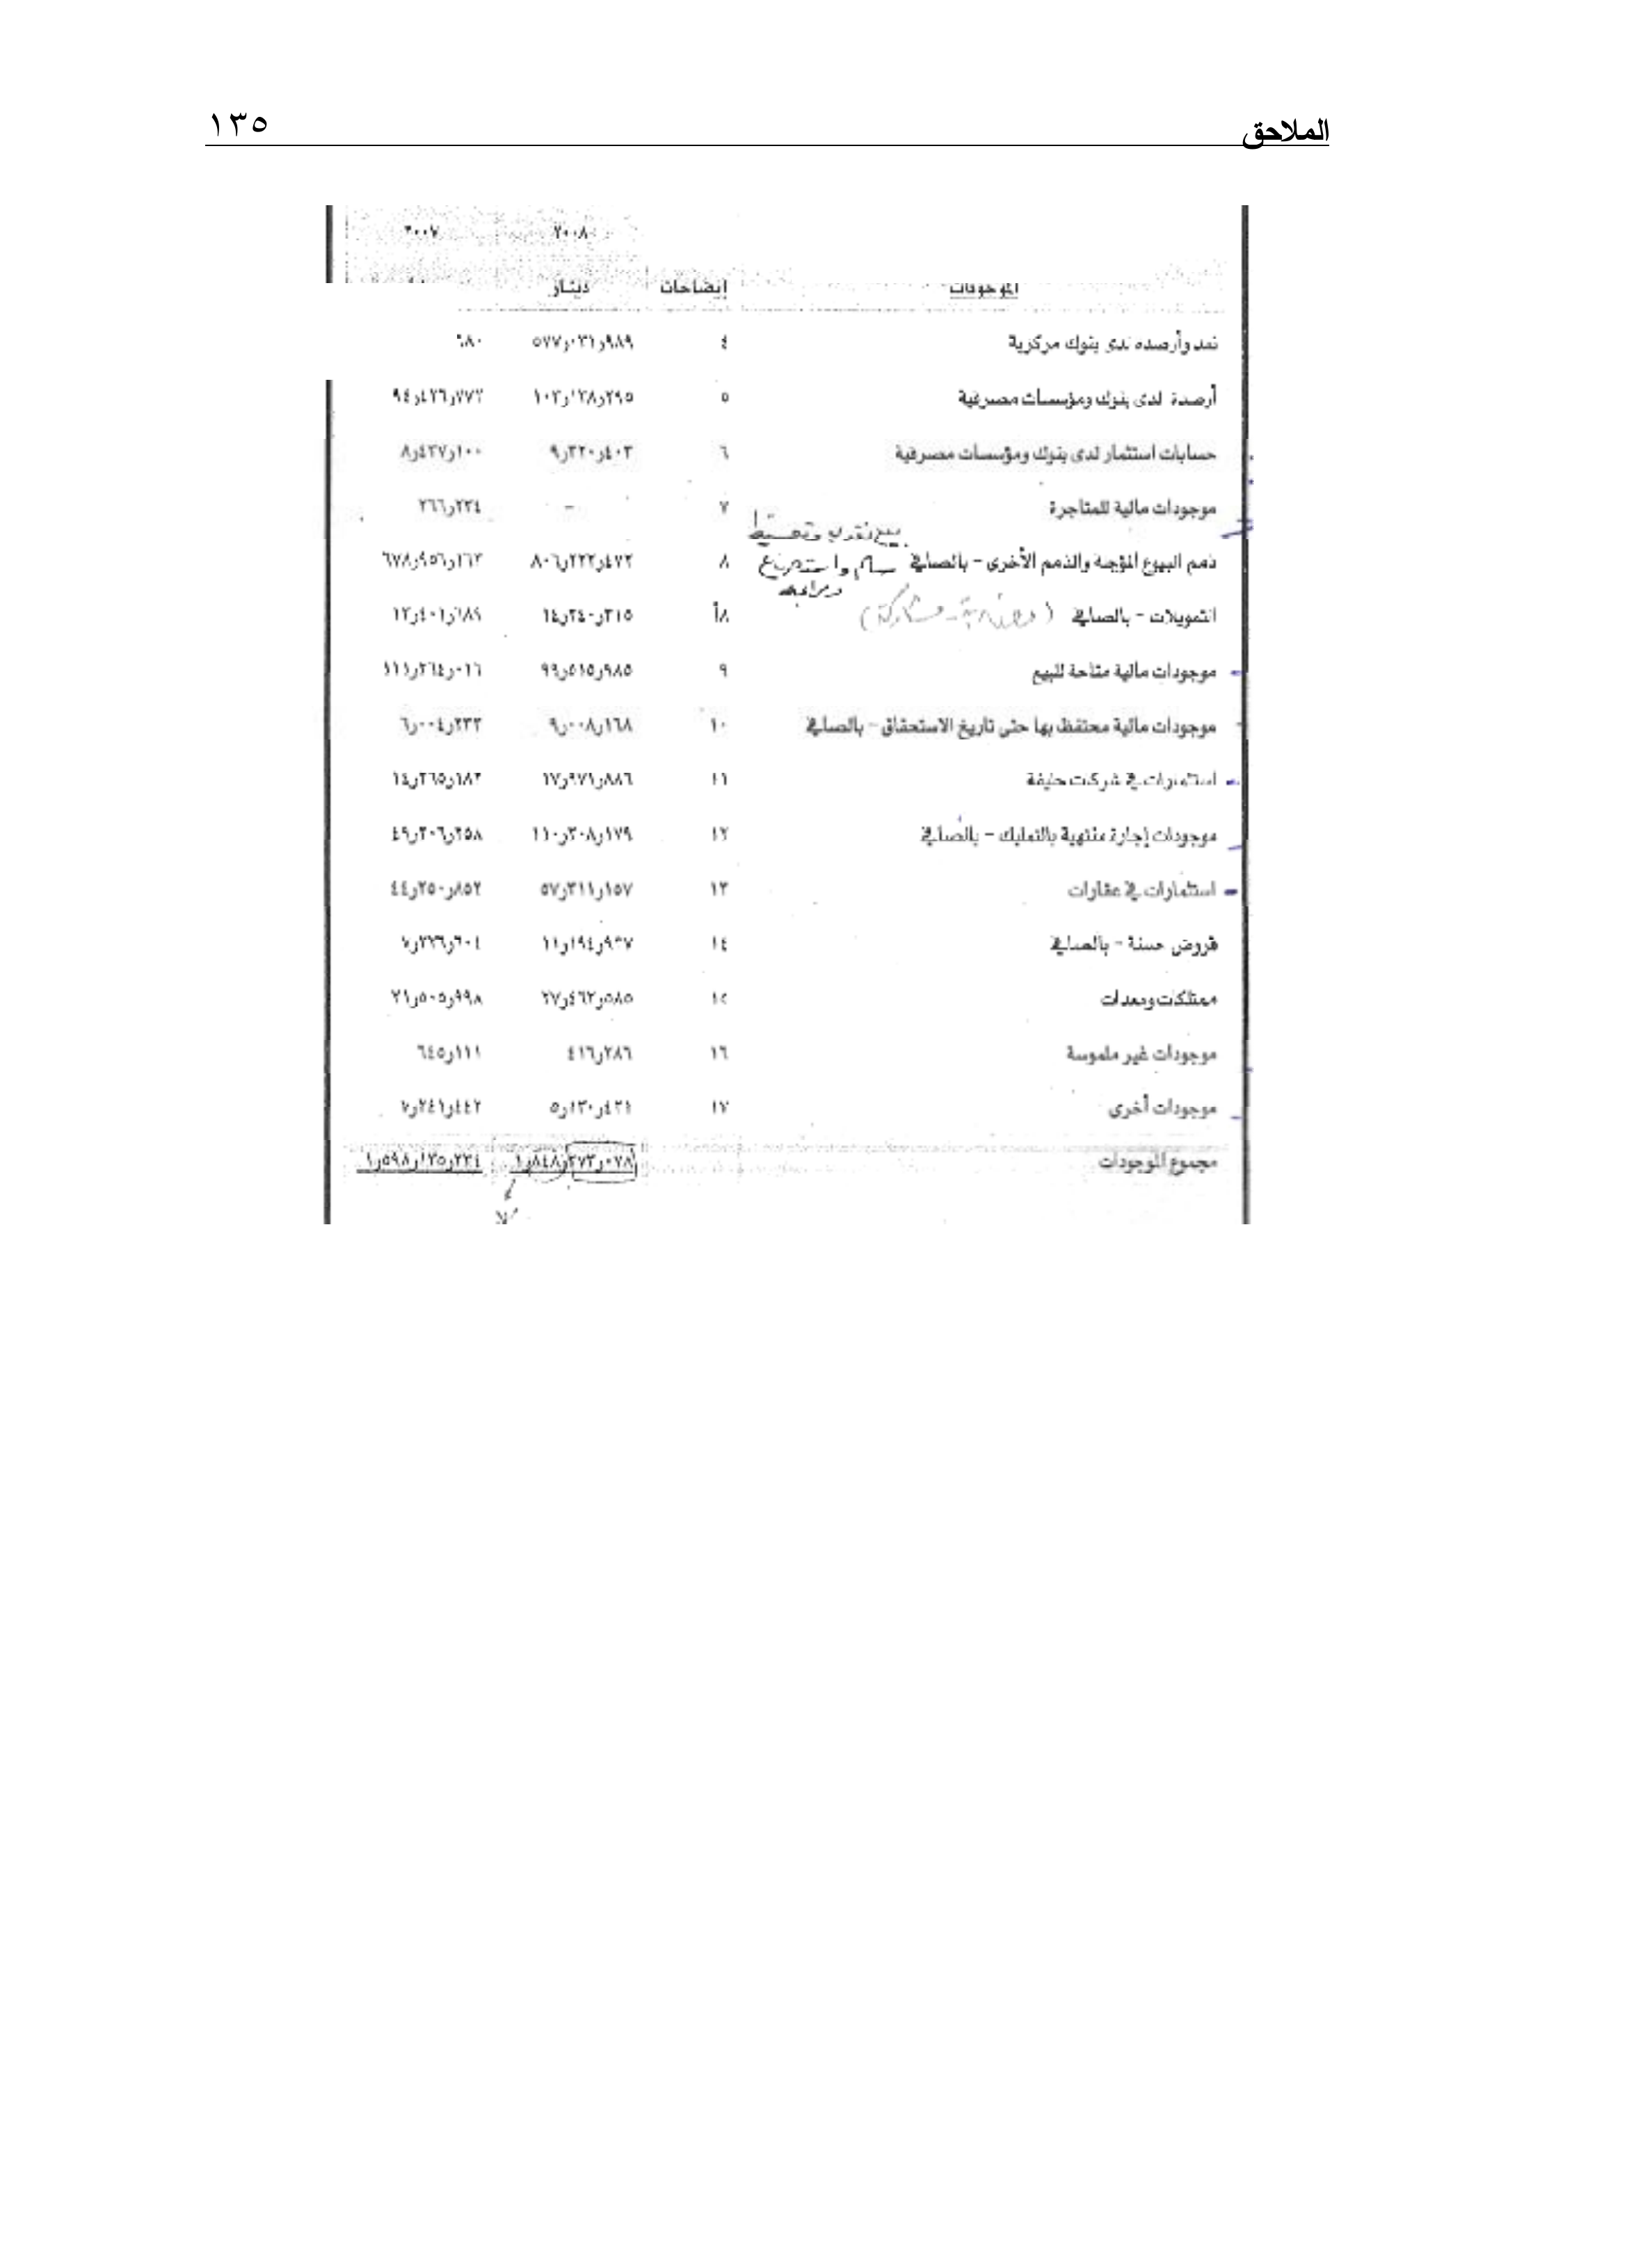 الملاحق ١٣٥
٢٠٠٨ ٢٠٠٧
الموجودات إيضاحات دينار
نقد وأرصدة لدى بنوك مركزية ٤ ٥٧٧ر٠٣١ر٩٨٩ ٦٨٠
أرصدة لدى بنوك ومؤسسات مصرفية ٥ ١٠٣ر١٣٨ر٢٩٥ ٩٤ر٤٢٦ر٧٧٣
حسابات استثمار لدى بنوك ومؤسسات مصرفية ٦ ٩ر٣٢٠ر٤٠٣ ٨ر٤٣٧ر١٠٠
موجودات مالية للمتاجرة ٧ - ٢٦٦ر٢٣٤
بيع نقدي وتقسيط
ذمم البيوع المؤجلة والذمم الأخرى - بالصافي سلم واستصناع ٨ ٨٠٦ر٢٢٢ر٤٧٢ ٦٧٨ر٩٥٦ر١٦٣
ومرابحة
التمويلات - بالصافي (مضاربة - مشاركة) ٨أ ١٤ر٢٤٠ر٣١٥ ١٣ر٤٠١ر٦٨٩
موجودات مالية متاحة للبيع ٩ ٩٩ر٥١٥ر٩٨٥ ١١١ر٢٦٤ر٠١٦
موجودات مالية محتفظ بها حتى تاريخ الاستحقاق - بالصافي ١٠ ٩ر٠٠٨ر١٦٨ ٦ر٠٠٤ر٢٣٣
استثمارات في شركات حليفة ١١ ١٧ر٩٧١ر٨٨٦ ١٤ر٢٦٥ر١٨٢
موجودات إجارة منتهية بالتمليك - بالصافي ١٢ ١١٠ر٣٠٨ر١٧٩ ٤٩ر٢٠٦ر٢٥٨
استثمارات في عقارات ١٣ ٥٧ر٣١١ر١٥٧ ٤٤ر٢٥٠ر٨٥٢
قروض حسنة - بالصافي ١٤ ١١ر١٩٤ر٩٣٧ ٧ر٢٢٦ر٦٠٤
ممتلكات ومعدات ١٥ ٢٧ر٤٦٢ر٥٨٥ ٢١ر٥٠٥ر٩٩٨
موجودات غير ملموسة ١٦ ٤١٦ر٢٨٦ ٦٤٥ر١١١
موجودات أخرى ١٧ ٥ر١٣٠ر٤٢١ ٧ر٢٤١ر٤٤٢
مجموع الموجودات ١ر٨٤٨ر٢٧٣ر٠٧٨ ١ر٥٩٨ر١٣٥ر٢٣٤